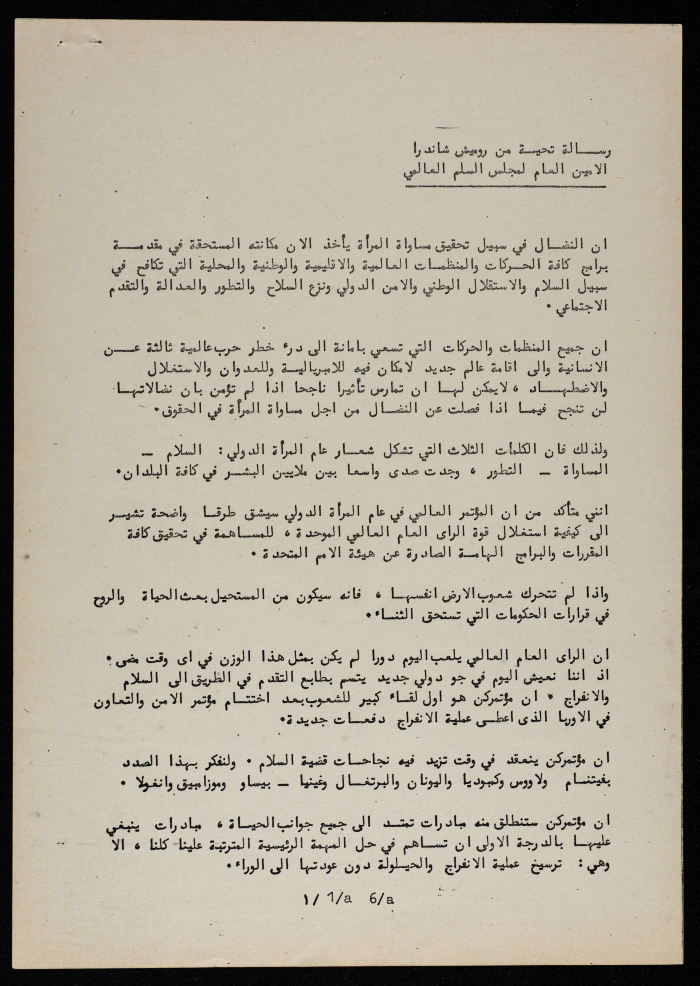 رسالة تحية من روميش شاندرا
الامين العام لمجلس السلم العالمي
ان النضال في سبيل تحقيق مساواة المرأة يأخذ الان مكانته المستحقة في مقدمة
برامج كافة الحركات والمنظمات العالمية والاقليمية والوطنية والمحلية التي تكافح في
سبيل السلام والاستقلال الوطني والامن الدولي ونزع السلاح والتطور والعدالة والتقدم
الاجتماعي .
ان جميع المنظمات والحركات التي تسعي بامانة الى درء خطر حرب عالمية ثالثة عن
الانسانية والى اقامة عالم جديد لامكان فيه للامبريالية وللعدوان والاستغلال
والاضطهاد ، لايمكن لها ان تمارس تأثيرا ناجحا اذا لم تؤمن بان نضالاتها
لن تنجح فيما اذا فصلت عن النضال من اجل مساواة المرأة في الحقوق .
ولذلك فان الكلمات الثلاث التي تشكل شعار عام المرأة الدولي : السلام –
المساواة – التطور ، وجدت صدى واسعا بين ملايين البشر في كافة البلدان .
انني متأكد من ان المؤتمر العالمي في عام المرأة الدولي سيشق طرقا واضحة تشير
الى كيفية استغلال قوة الراى العام العالمي الموحدة ، للمساهمة في تحقيق كافة
المقررات والبرامج الهامة الصادرة عن هيئة الامم المتحدة .
واذا لم تتحرك شعوب الارض انفسها ، فانه سيكون من المستحيل بعث الحياة والروح
في قرارات الحكومات التي تستحق الثناء .
ان الراى العام العالمي يلعب اليوم دورا لم يكن بمثل هذا الوزن في اى وقت مضى .
اذ اننا نعيش اليوم في جو دولي جديد يتسم بطابع التقدم في الطريق الى السلام
والانفراج . ان مؤتمركن هو اول لقاء كبير للشعوب بعد اختتام مؤتمر الامن والتعاون
في الاوربا الذى اعطى عملية الانفراج دفعات جديدة .
ان مؤتمركن ينعقد في وقت تزيد فيه نجاحات قضية السلام . ولنفكر بهذا الصدد
بفيتنام ولاووس وكمبوديا واليونان والبرتغال وغينيا – بيساو وموزامبيق وانغولا .
ان مؤتمركن ستنطلق منه مبادرات تمتد الى جميع جوانب الحياة ، مبادرات ينبغي
عليها بالدرجة الاولى ان تساهم في حل المهمة الرئيسية المترتبة علينا كلنا ، الا
وهي : ترسيخ عملية الانفراج والحيلولة دون عودتها الى الوراء .
١/ 1/a 6/a